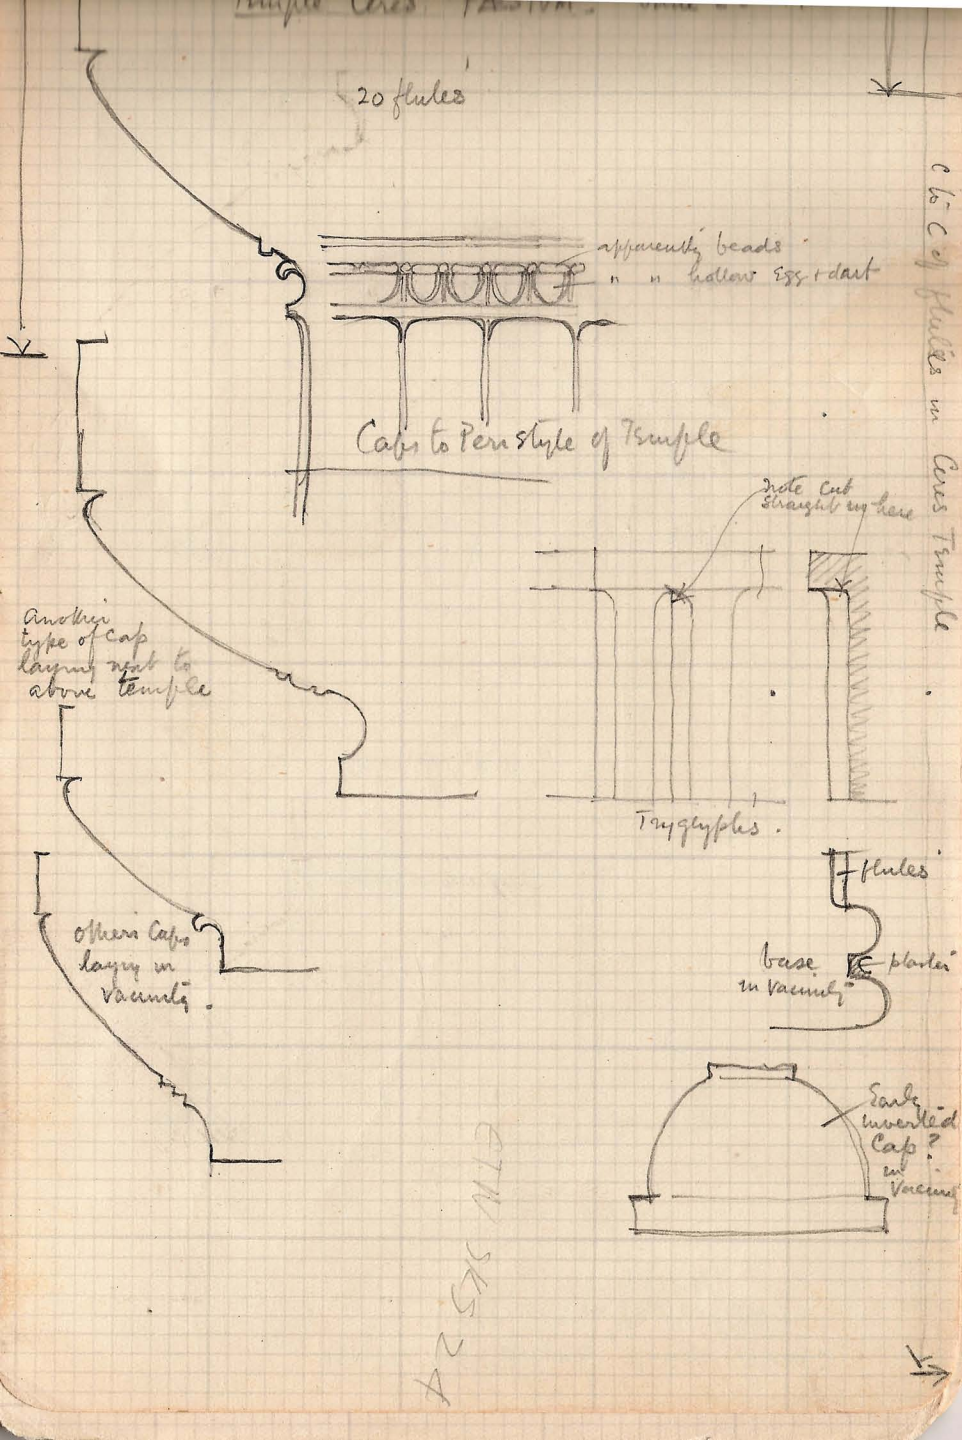 Temple Ceres. PAESTUM.
20 flutes
apparently beads
" " hollow Egg + dart
Caps to Peristyle of Temple
C to C of flutes in Ceres Temple
note cut
straight in here
Another
type of Cap
laying next to
above temple
Tryglyphs.
others Caps
laying in
vacinity.
flutes
base
in vacinity
plaster
Early
inverted
Cap?
in
vacinity
CTN SKS 24